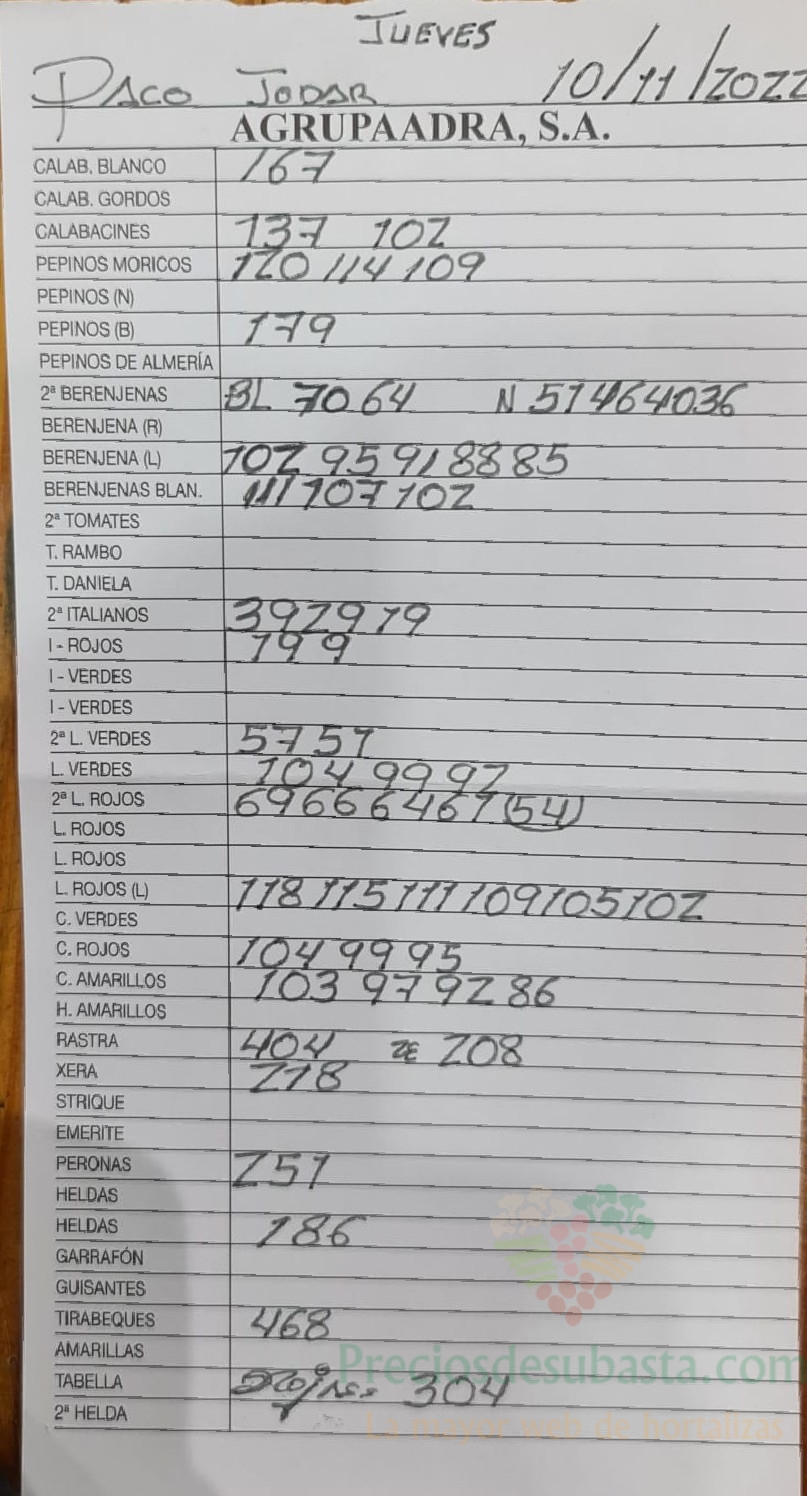 JUEVES
PACO JODAR 10/11/2022
AGRUPAADRA, S.A.
CALAB. BLANCO 167
CALAB. GORDOS
CALABACINES 137 102
PEPINOS MORICOS 120 114 109
PEPINOS (N)
PEPINOS (B) 179
PEPINOS DE ALMERÍA
2ª BERENJENAS BL 70 64 N 51 46 40 36
BERENJENA (R)
BERENJENA (L) 102 95 91 88 85
BERENJENAS BLAN. 111 107 102
2ª TOMATES
T. RAMBO
T. DANIELA
2ª ITALIANOS 39 29 19
I - ROJOS 199
I - VERDES
I - VERDES
2ª L. VERDES 57 51
L. VERDES 104 99 92
2ª L. ROJOS 69 66 64 61 (54)
L. ROJOS
L. ROJOS
L. ROJOS (L) 118 115 111 109 105 102
C. VERDES
C. ROJOS 104 99 95
C. AMARILLOS 103 97 92 86
H. AMARILLOS
RASTRA 404 2ª 208
XERA 218
STRIQUE
EMERITE
PERONAS 251
HELDAS
HELDAS 186
GARRAFÓN
GUISANTES
TIRABEQUES 468
AMARILLAS
Preciosdesubasta.com
TABELLA 304
2ª HELDA
La mayor web de hortalizas